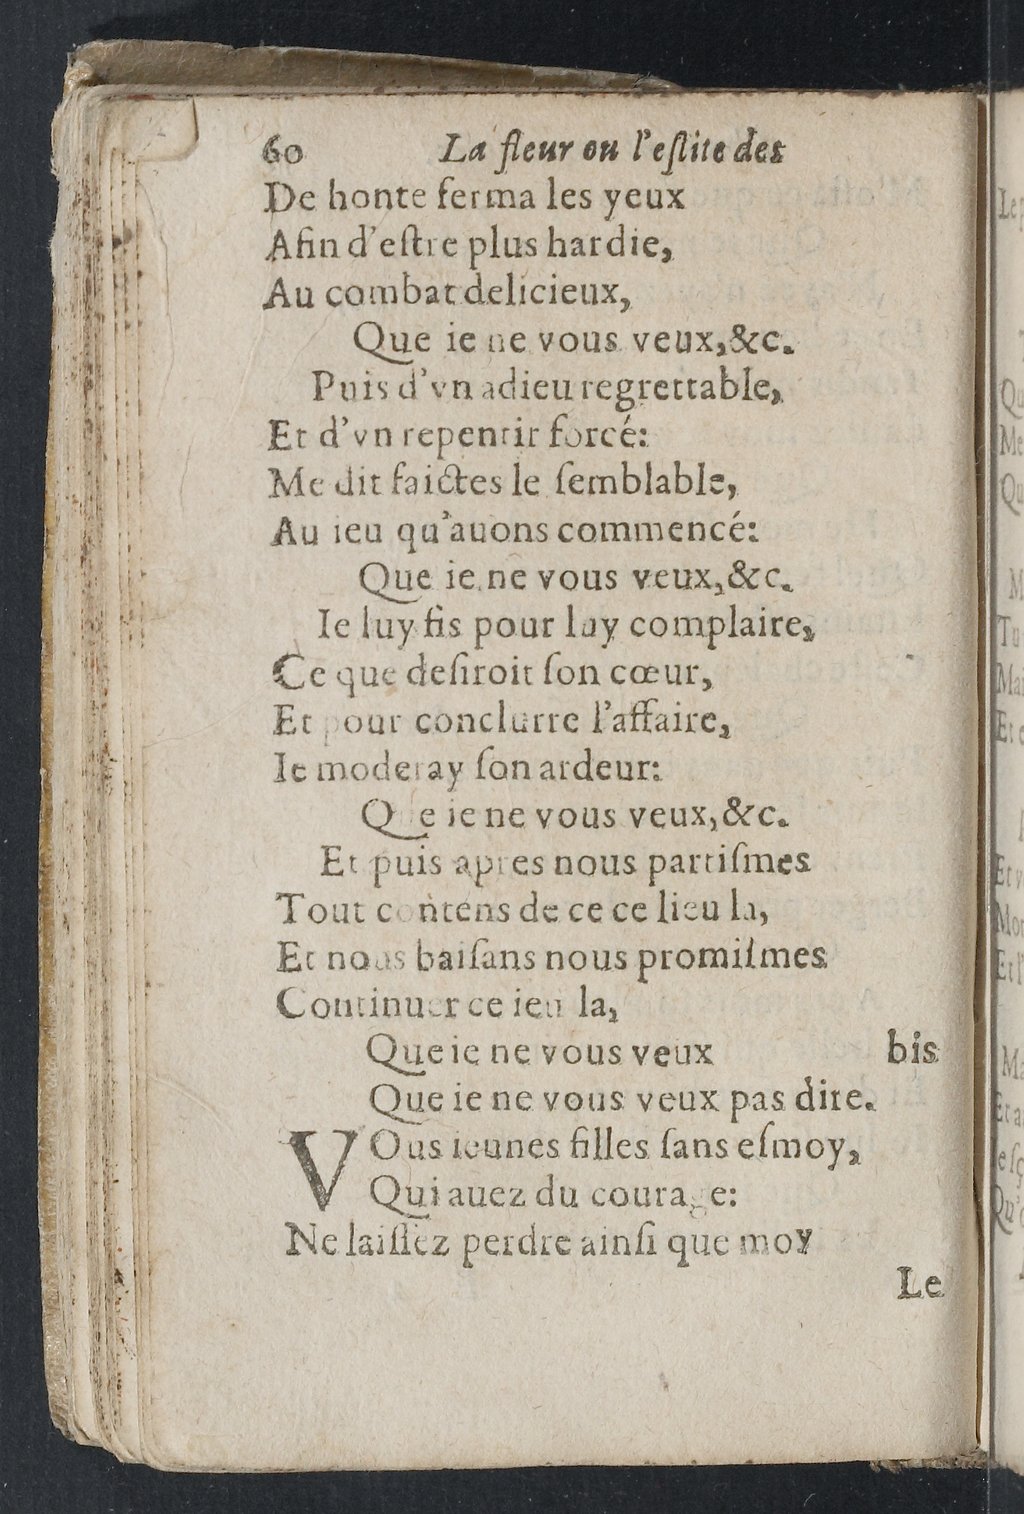 60 La fleur ou l'eſlite des
De honte ferma les yeux
Afin d'eſtre plus hardie,
Au combat delicieux,
Que ie ne vous veux,&c.
Puis d'vn adieu regrettable,
Et d'vn repentir forcé:
Me dit faictes le ſemblable,
Au ieu qu'auons commencé:
Que ie ne vous veux,&c.
Ie luy fis pour luy complaire,
Ce que deſiroit ſon cœur,
Et pour conclurre l'affaire,
Ie moderay ſon ardeur:
Que ie ne vous veux,&c.
Et puis apres nous partiſmes
Tout contens de ce ce lieu la,
Et nous baiſans nous promiſmes
Continuer ce ieu la,
Que ie ne vous veux bis
Que ie ne vous veux pas dire.
VOus ieunes filles ſans eſmoy,
Qui auez du courage:
Ne laiſſez perdre ainſi que moy
Le